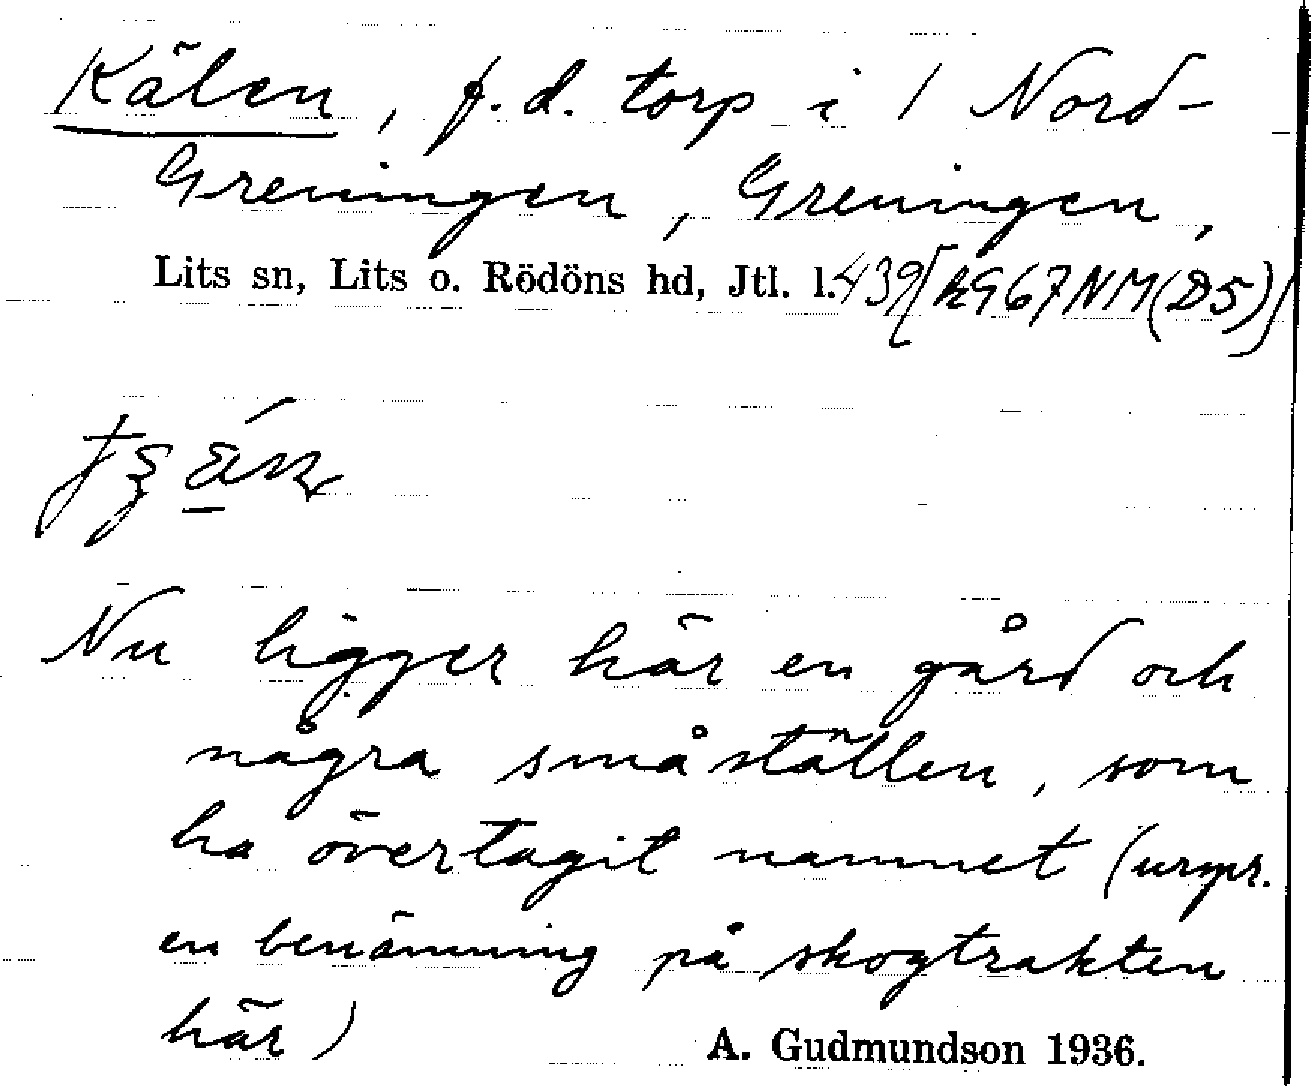 Kälen, f.d. torp i 1 Nord-
Greningen, Greningen,
Lits sn, Lits o. Rödöns hd, Jtl. l. 439 [RG67NM(D5)]
Nu ligger här en gård och
några småställen, som
ha övertagit namnet (urspr.
en benämning på skogtrakten
här)
A. Gudmundson 1936.